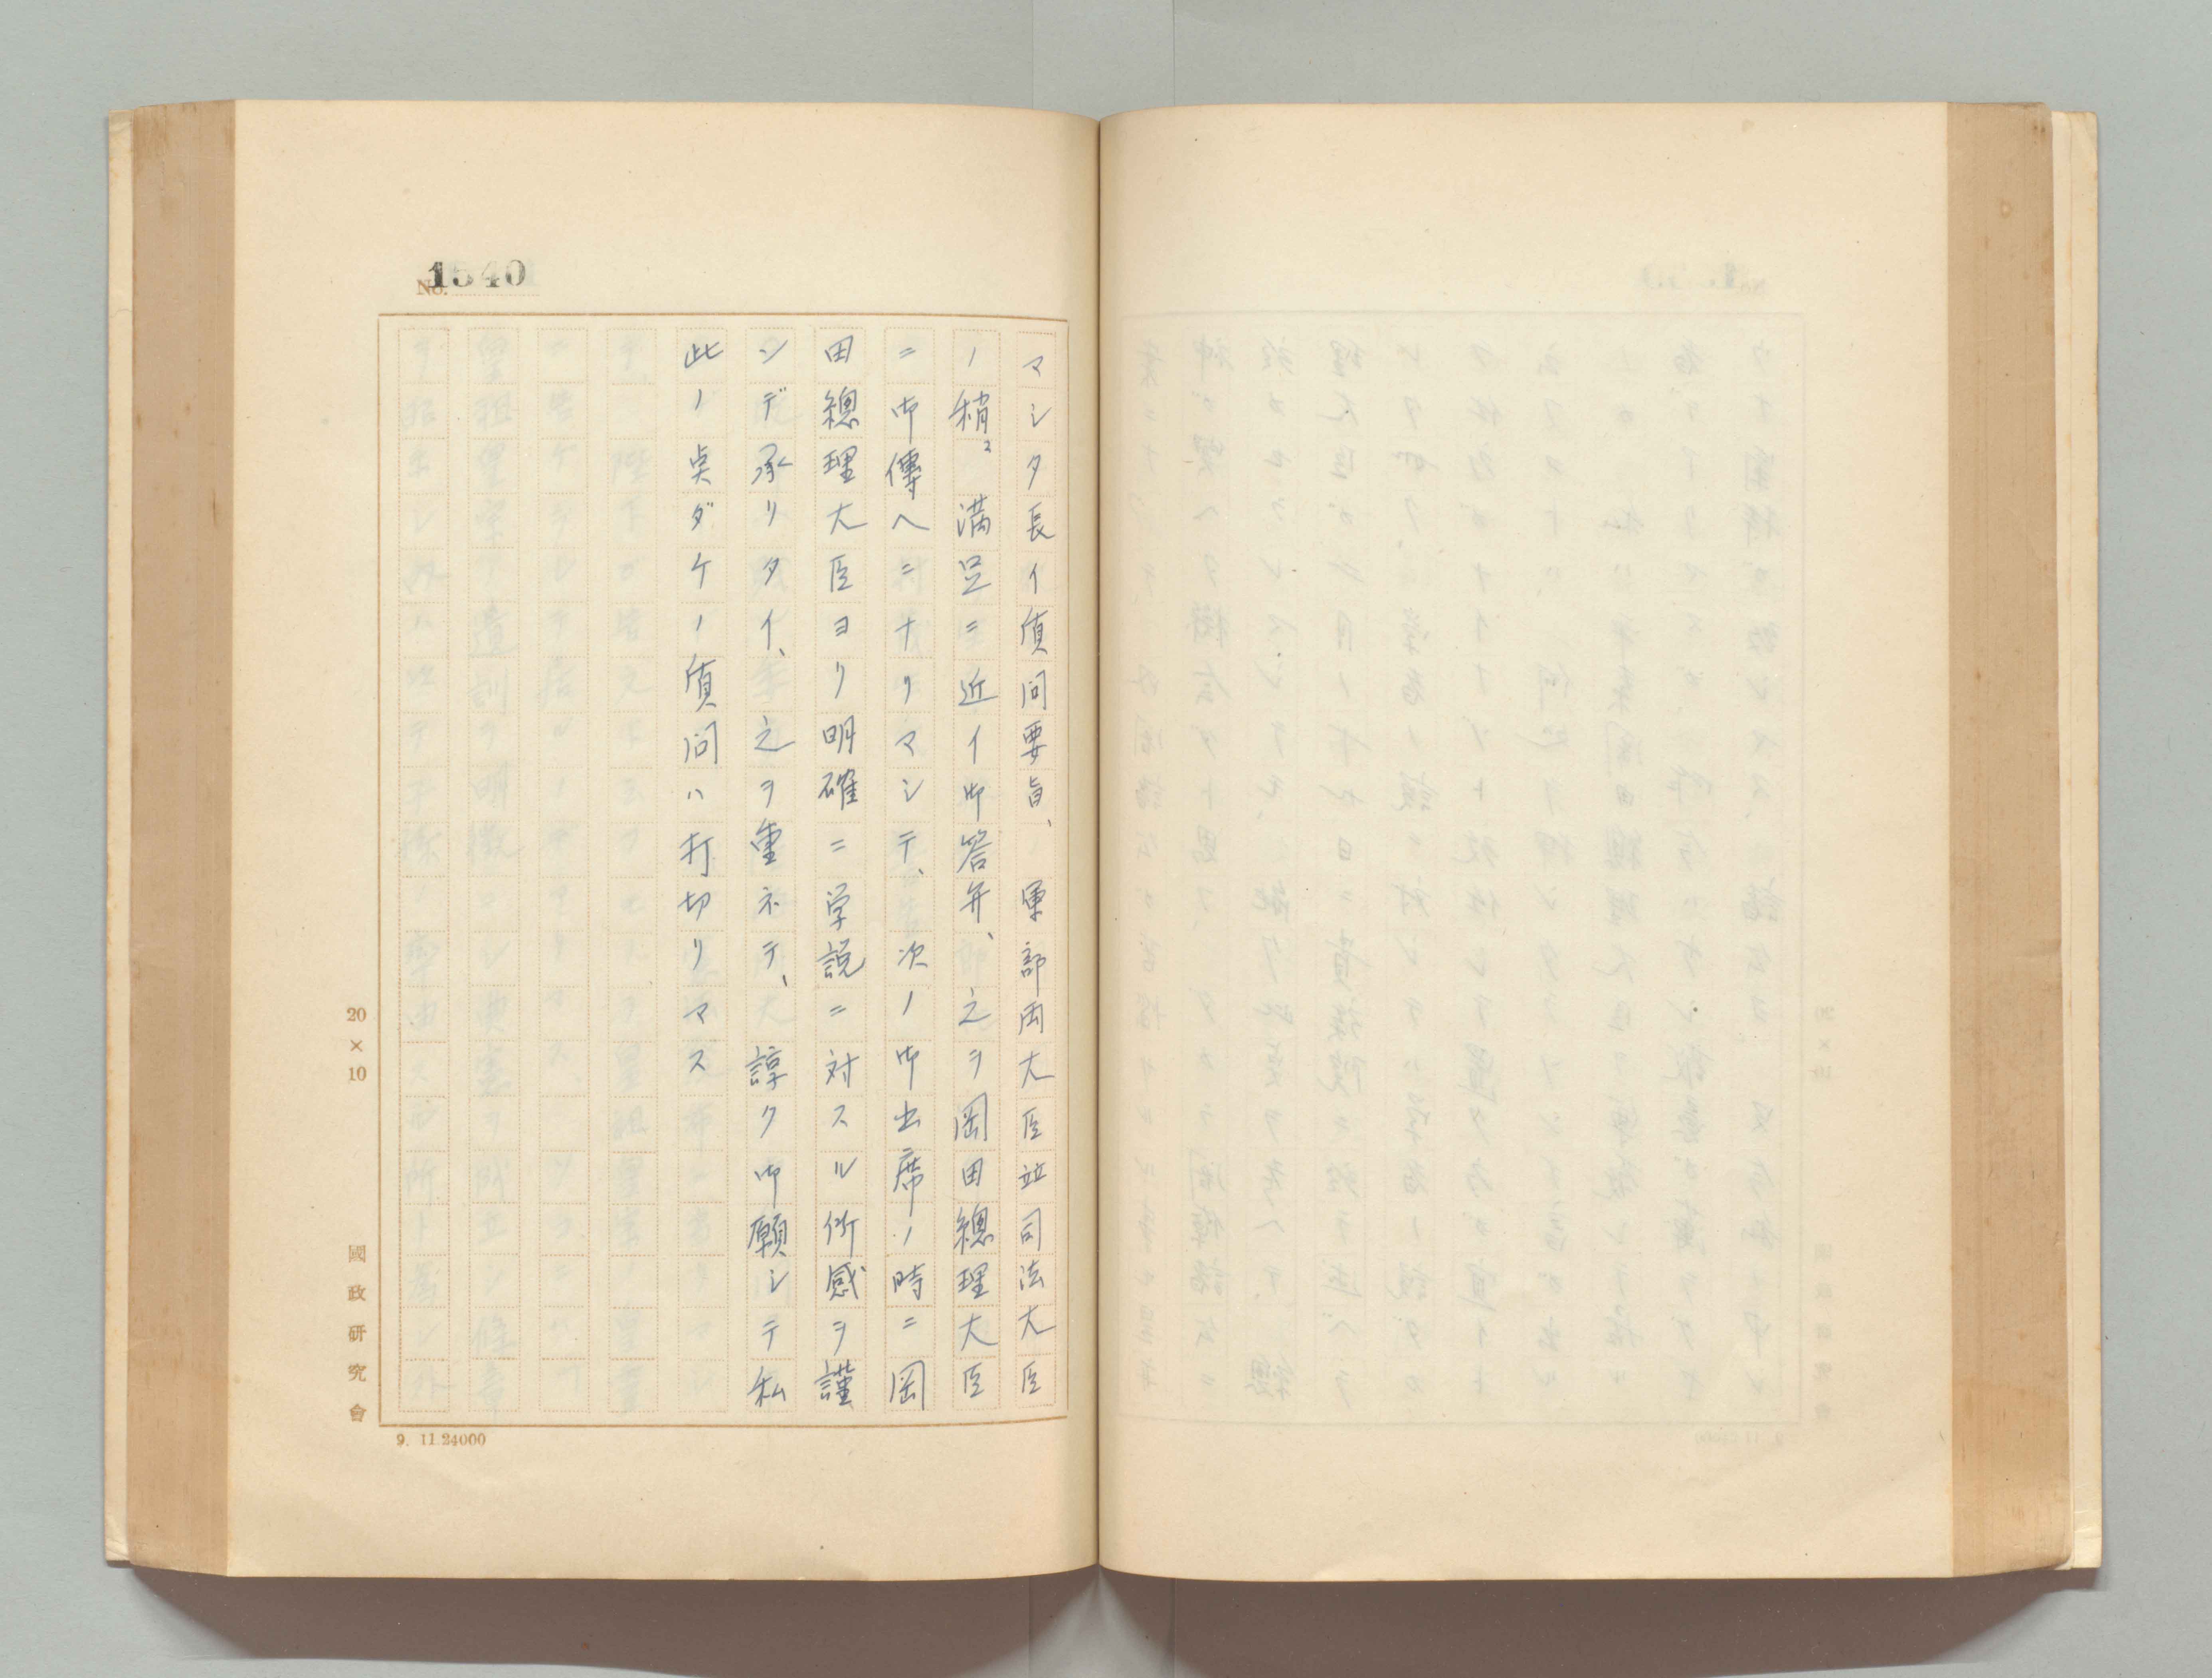 1540
No.
マシタ長イ質問要旨、軍部両大臣並司法大臣
ノ稍〻満足ニ近イ御答弁、之ヲ岡田總理大臣
ニ御傳ヘニナリマシテ、次ノ御出席ノ時ニ岡
田總理大臣ヨリ明確ニ学説ニ対スル所感ヲ謹
ンデ承リタイ、之ヲ重ネテ、諄ク御願シテ私
此ノ点ダケノ質問ハ打切リマス
20×10
國政研究會
9. 11.24000